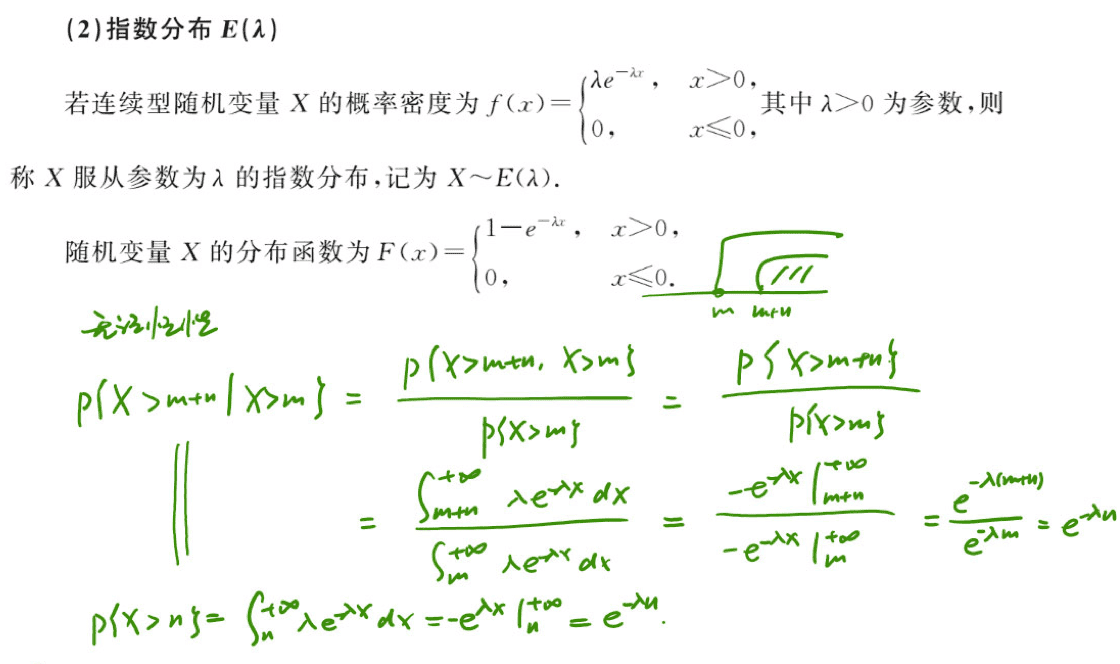 (2)指数分布 E(λ)
若连续型随机变量 X 的概率密度为 f(x)={λe^{-λx}, x>0, 0, x≤0, 其中 λ>0 为参数,则
称 X 服从参数为λ 的指数分布,记为 X～E(λ).
随机变量 X 的分布函数为 F(x)={1-e^{-λx}, x>0, 0, x≤0.
m m+n
无记忆性
P{X>m+n|X>m} = P{X>m+n, X>m} / P{X>m} = P{X>m+n} / P{X>m}
= ∫_{m+n}^{+∞} λe^{-λx} dx / ∫_{m}^{+∞} λe^{-λx} dx = -e^{-λx}|_{m+n}^{+∞} / -e^{-λx}|_{m}^{+∞} = e^{-λ(m+n)} / e^{-λm} = e^{-λn}
P{X>n} = ∫_{n}^{+∞} λe^{-λx} dx = -e^{λx}|_{n}^{+∞} = e^{-λn}.